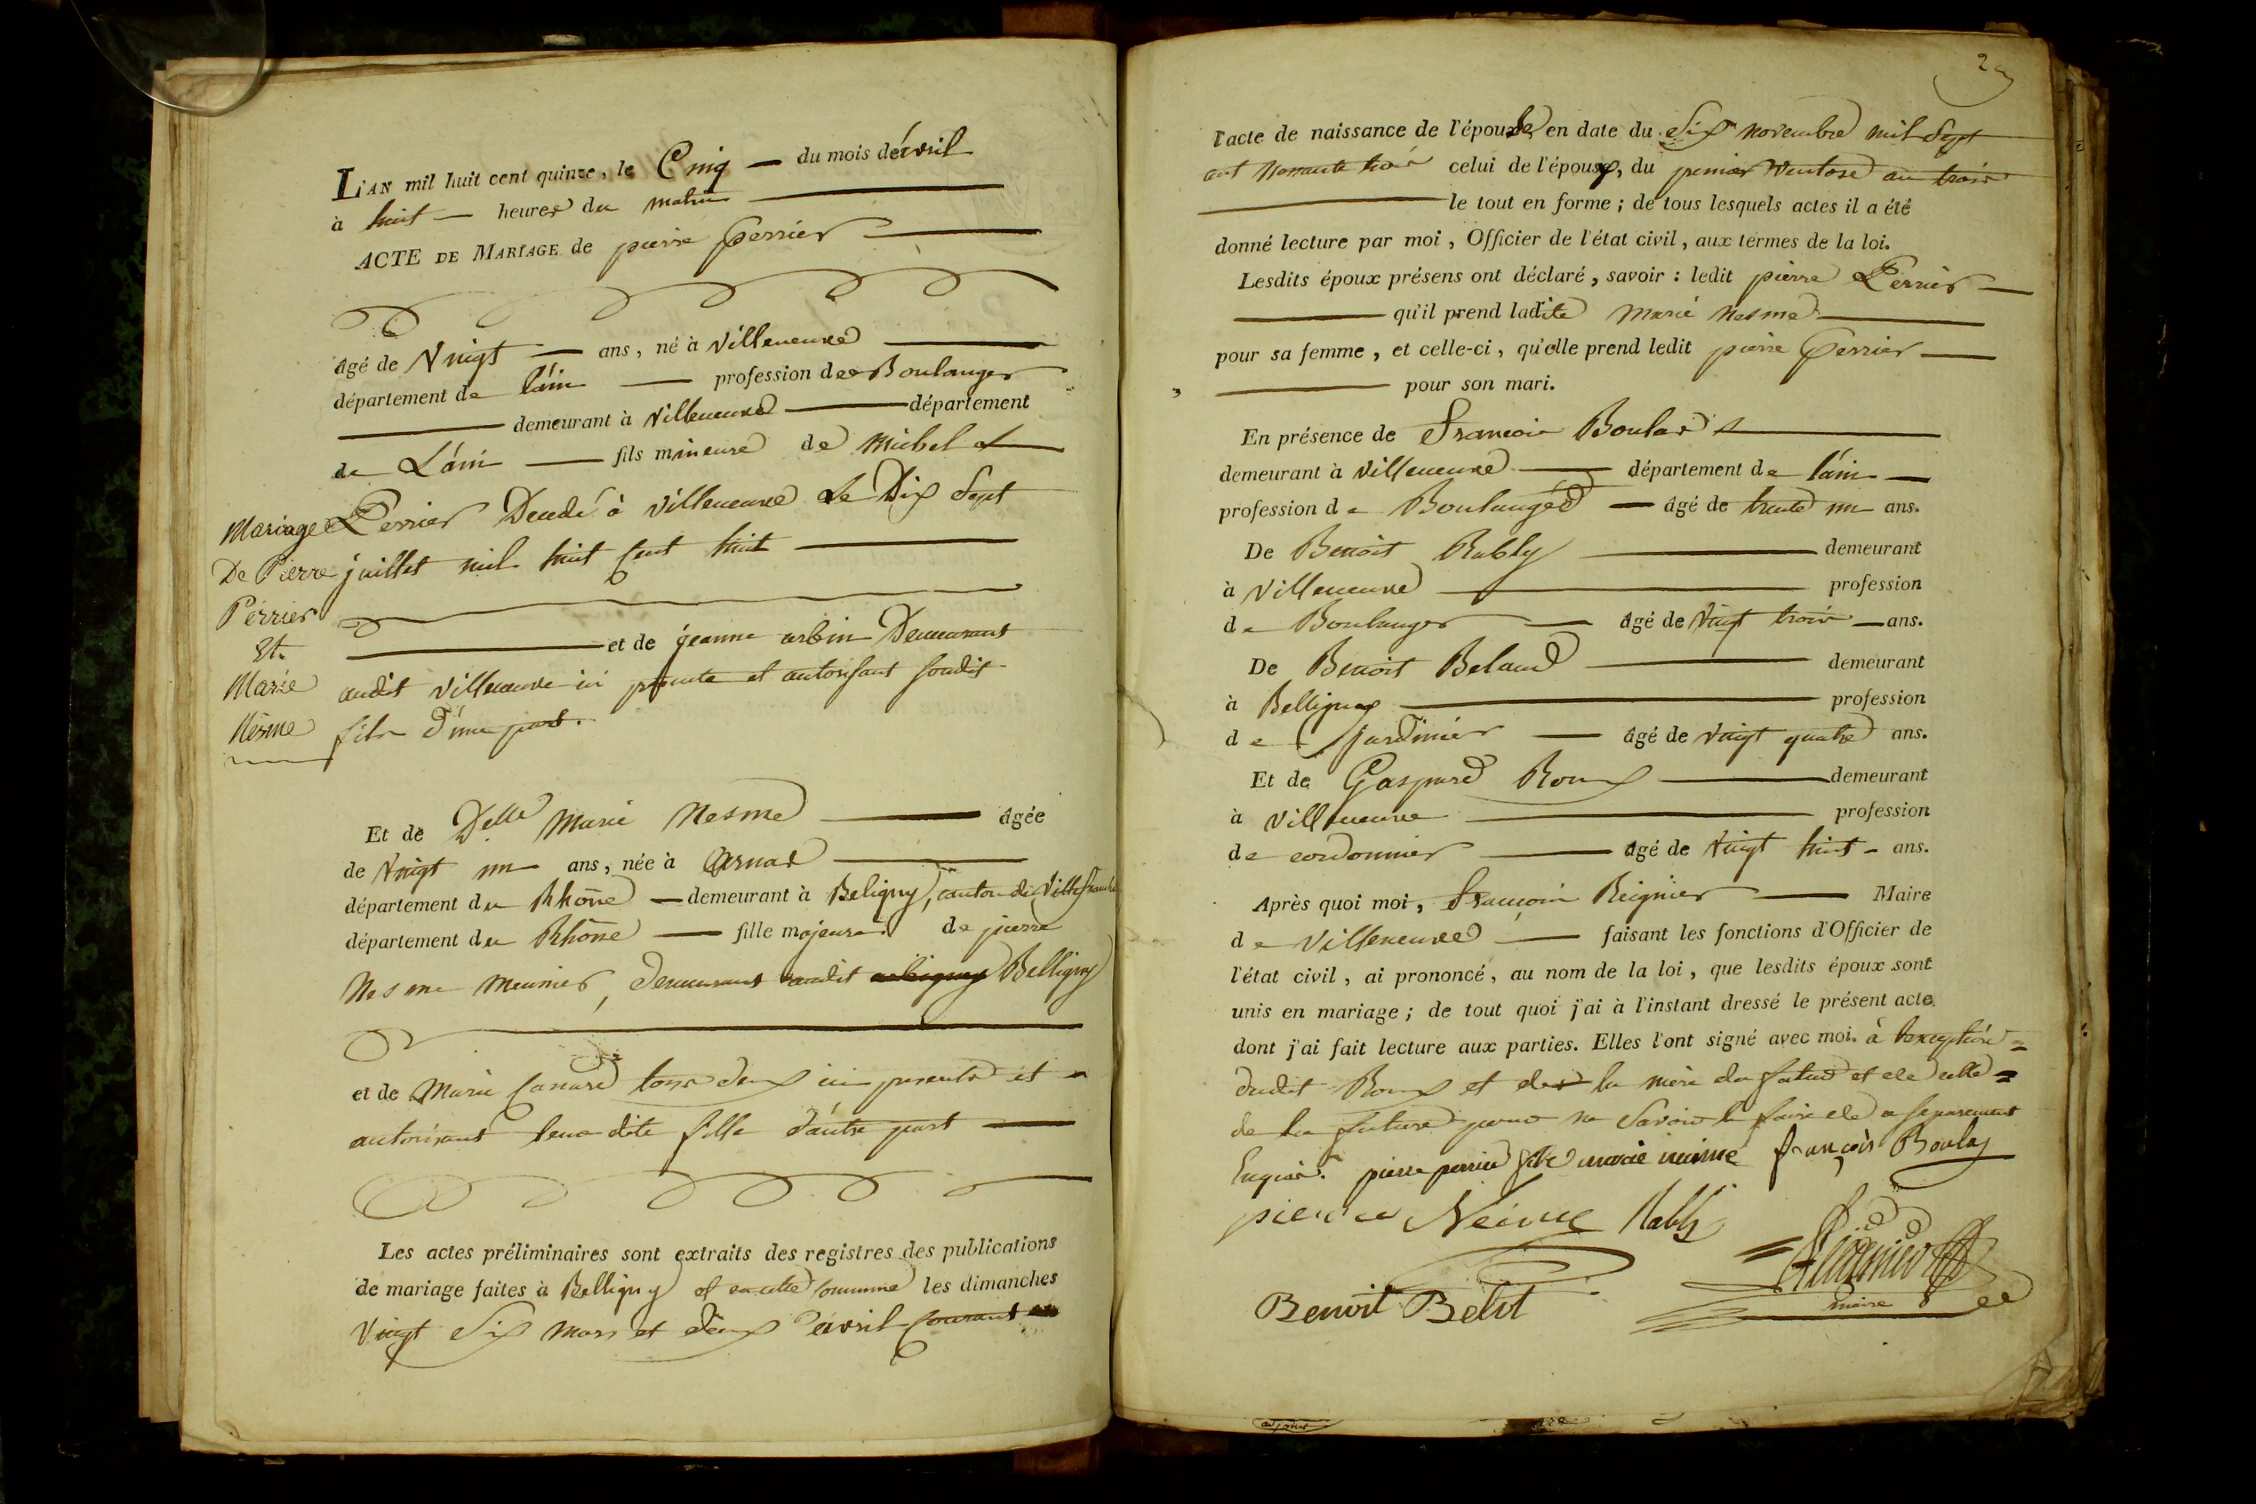 L'AN mil huit cent quinze, le Cinq du mois d'avril
à huit heures du matin
ACTE DE MARIAGE de pierre Perrier
âgé de Vingt ans, né à Villeneuve
département de l'ain profession de Boulanger
demeurant à Villeneuve département
de L'ain fils mineure de Michel
Perrier Decedé à Villeneuve Le Dix Sept
juillet mil huit Cent huit
et de jeanne arbin Demeurant
audit Villeneuve ici presente et autorisant soudit
fils d'une part.
Mariage
De Pierre
Perrier
Et.
Marie
Nesme
Et de Delle Marie Nesme âgée
de Vingt un ans, née à Arnas
département du Rhône demeurant à Beligny, canton de Villefranche
département du Rhône fille majeure de pierre
Nesme Meunier, demeurant audit Belligny
et de Marie Canard tous deux ici presents et
autorisant leur dite fille d'autre part
Les actes préliminaires sont extraits des registres des publications
de mariage faites à Belligny et en cette commune les dimanches
Vingt Six Mars et deux avril courant
l'acte de naissance de l'épouse en date du Six novembre mil Sept
cent Nonante trois celui de l'époux, du premier Ventose an trois
le tout en forme ; de tous lesquels actes il a été
donné lecture par moi, Officier de l'état civil, aux termes de la loi.
Lesdits époux présens ont déclaré, savoir : ledit pierre Perrier
qu'il prend ladite Marie Nesme
pour sa femme, et celle-ci, qu'elle prend ledit pierre Perrier
pour son mari.
En présence de François Boulas
demeurant à Villeneuve département de l'ain
profession de Boulanger âgé de trente un ans.
De Benoit Rubly demeurant
à Villeneuve profession
de Boulanger âgé de Vingt trois ans.
De Benoit Belaud demeurant
à Belligny profession
de jardinier âgé de Vingt quatre ans.
Et de Gaspard Roux demeurant
à Villeneuve profession
de cordonnier âgé de Vingt huit ans.
Après quoi moi, François Reignier Maire
de Villeneuve faisant les fonctions d'Officier de
l'état civil, ai prononcé, au nom de la loi, que lesdits époux sont
unis en mariage ; de tout quoi j'ai à l'instant dressé le présent acte
dont j'ai fait lecture aux parties. Elles l'ont signé avec moi. à
dudit Roux et de la mère du futur et de celle
de la future pour ne Savoir le faire de ce separement
Enquis. pierre perrier marie neime françois Boulas
pierre Neime Rubly
Benoit Belot
maire